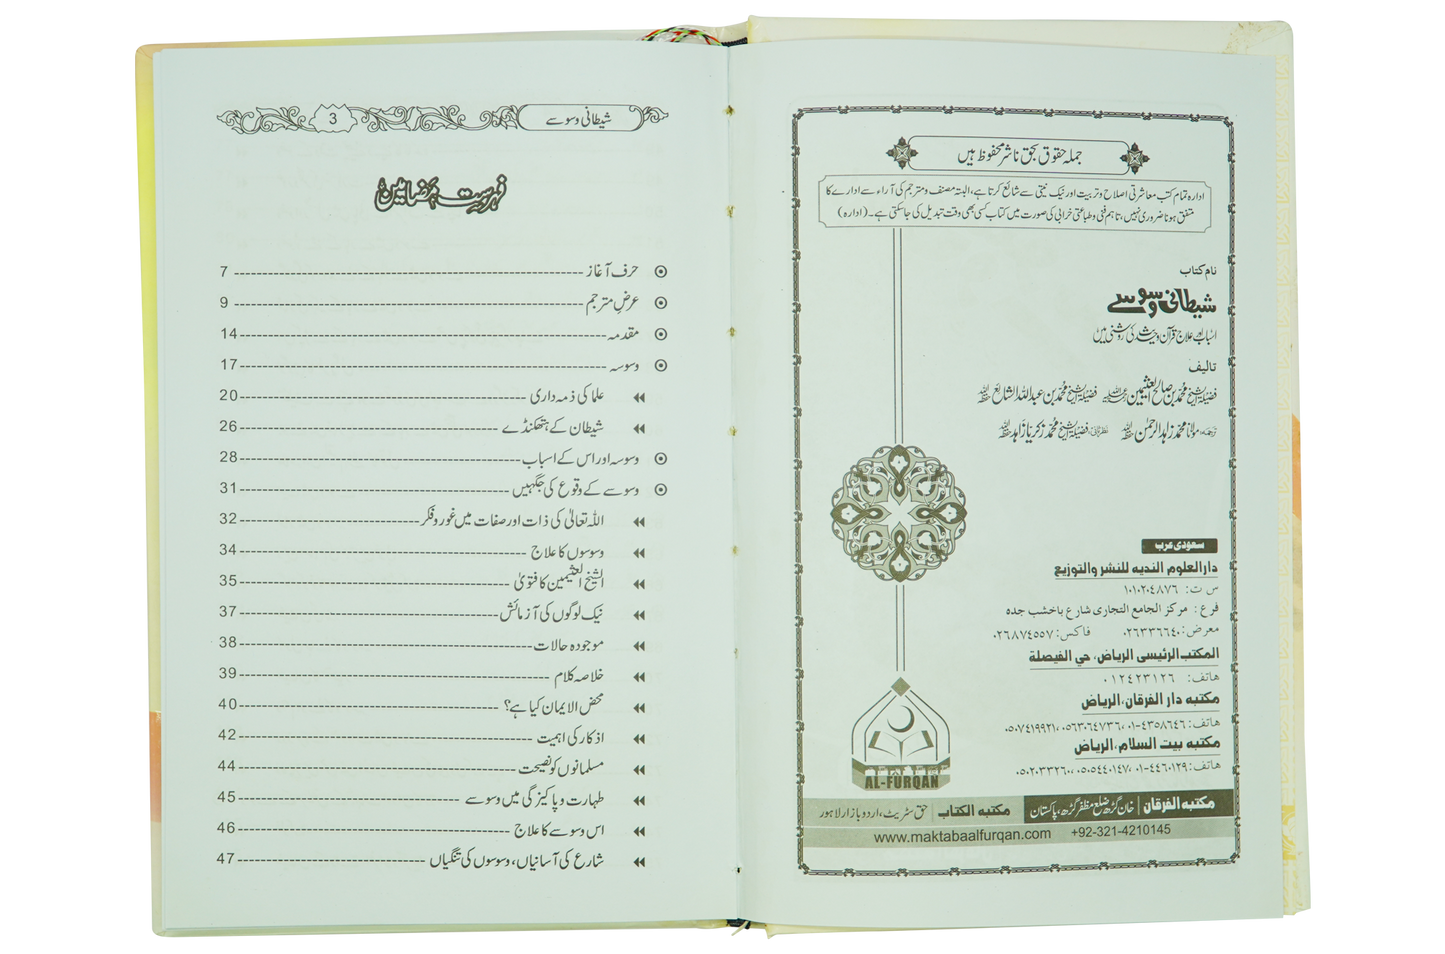 جملہ حقوق بحق ناشر محفوظ ہیں
ادارہ تمام کتب معاشرتی اصلاح و تربیت اور نیک نیتی سے شائع کرتا ہے، البتہ مصنف و مترجم کی آراء سے ادارے کا
متفق ہونا ضروری نہیں، تاہم فنی و طباعتی خرابی کی صورت میں کتاب کسی بھی وقت تبدیل کی جاسکتی ہے۔ (ادارہ)
نام کتاب
شیطانی وسوسے
اسباب اور علاج قرآن و حدیث کی روشنی میں
تالیف
فضیلۃ الشیخ محمد بن صالح العثیمین رحمہ اللہ فضیلۃ الشیخ محمد بن عبداللہ الشائع حفظہ اللہ
ترجمہ: مولانا محمد زاہد الرحمٰن حفظہ اللہ نظرثانی: فضیلۃ الشیخ محمد زکریا زاہد حفظہ اللہ
سعودی عرب
دارالعلوم الندیه للنشر والتوزیع
س ت: ١٠١٠٢٠٤٨٧٦
فرع: مرکز الجامع التجاری شارع باخشب جده
معرض: ٠٢٦٣٣٦٦٤٠ فاکس: ٠٢٦٨٧٤٥٥٧
المکتب الرئیسی الریاض، حي الفیصلة
هاتف: ٠١٢٤٢٣١٢٦
مکتبه دار الفرقان، الریاض
هاتف: ٠١-٤٣٥٨٦٤٦، ٠٥٦٣٠٦٤٧٣٦، ٠٥٠٧٤١٩٩٢١
مکتبه بیت السلام، الریاض
هاتف: ٠١-٤٤٦٠١٢٩، ٠٥٠٥٤٤٠١٤٧، ٠٥٠٢٠٣٣٢٦٠
AL-FURQAN
مکتبه الفرقان | خان گڑھ ضلع مظفر گڑھ، پاکستان
مکتبه الکتاب | حق سٹریٹ، اردو بازار لاہور
www.maktabaalfurqan.com +92-321-4210145
شیطانی وسوسے 3
فہرست مضامین
حرف آغاز 7
عرضِ مترجم 9
مقدمہ 14
وسوسہ 17
علما کی ذمہ داری 20
شیطان کے ہتھکنڈے 26
وسوسہ اور اس کے اسباب 28
وسوسے کے وقوع کی جگہیں 31
اللہ تعالیٰ کی ذات اور صفات میں غور و فکر 32
وسوسوں کا علاج 34
الشیخ العثیمین کا فتویٰ 35
نیک لوگوں کی آزمائش 37
موجودہ حالات 38
خلاصہ کلام 39
محض الایمان کیا ہے؟ 40
اذکار کی اہمیت 42
مسلمانوں کو نصیحت 44
طہارت و پاکیزگی میں وسوسے 45
اس وسوسے کا علاج 46
شارع کی آسانیاں، وسوسوں کی تنگیاں 47